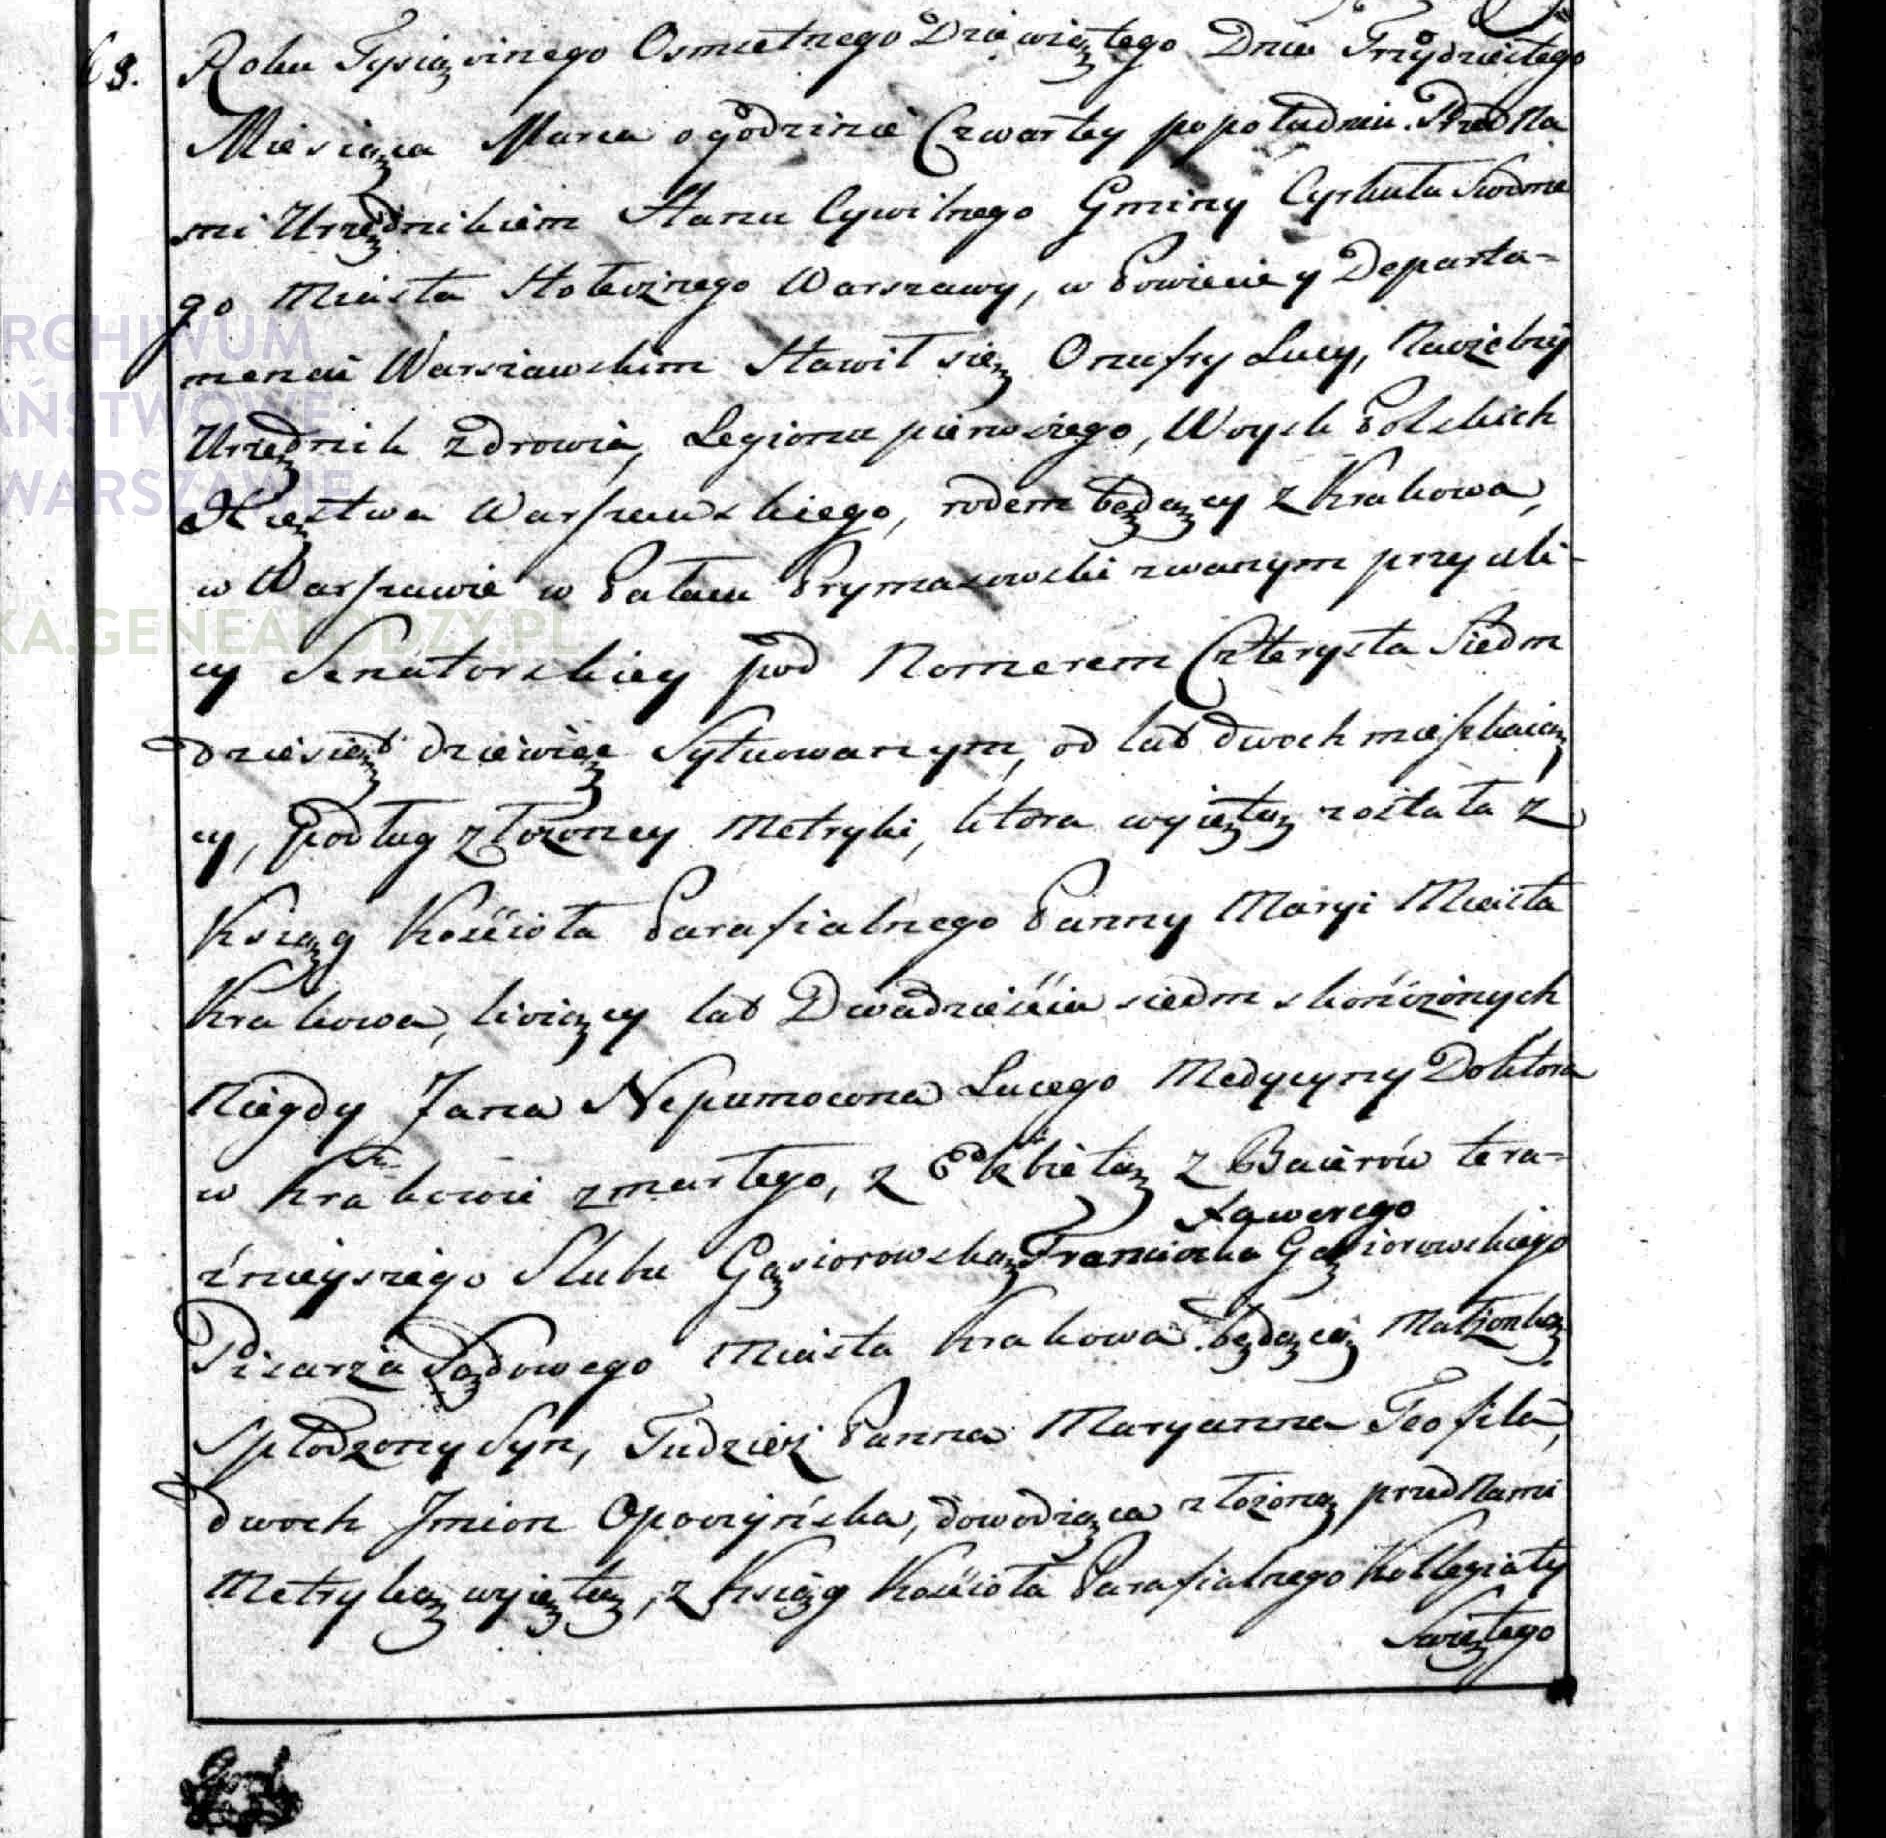 63. Roku Tysiącznego Osmsetnego Dziewiątego Dnia Trzydziestego
Miesiąca Marca o godzinie Czwartey popołudniu. Przed Na
mi Urzędnikiem Stanu Cywilnego Gminy Cyrkułu Siodme
go Miasta Stołecznego Warszawy, w Powiecie y Departa-
mencie Warszawskim Stawił się Onufry Lucy, Naczelny
Urzędnik zdrowia, Legionu pierwszego, Woysk Polskich
Xięstwa Warszawskiego, rodem będący z Krakowa,
w Warszawie w Pałacu Prymasowski zwanym przy uli-
cy Senatorskiey pod Nomerem Czterysta Siedm
dziesiąt dziewięc Sytuowanym, od lat dwoch mieszkaią
cy, podług złożoney Metryki, ktora wyiętą została z
Ksiąg Kościoła Parafialnego Panny Maryi Miasta
Krakowa, liczący lat Dwadzieścia siedm skończonych
Niegdy Jana Nepumocena Lucego Medycyny Doktora
w Krakowie zmarłego, z Elżbietą z Baierów tera-
Xawerego
źnieyszego Slubu Gąsiorowską Franciszka Gąsiorowskiego
Pisarza Sądowego Miasta Krakowa będącą Małżonką
Spłodzony Syn, Tudzież Panna Maryanna Teofila,
dwoch Jmion Opoczyńska, dowodząca złożoną przed Nami
Metryką wyiętą, z Ksiąg Kościoła Parafialnego Kollegiaty
Swiętego
ARCHIWUM
PAŃSTWOWE
WARSZAWIE
KA.GENEALODZY.PL